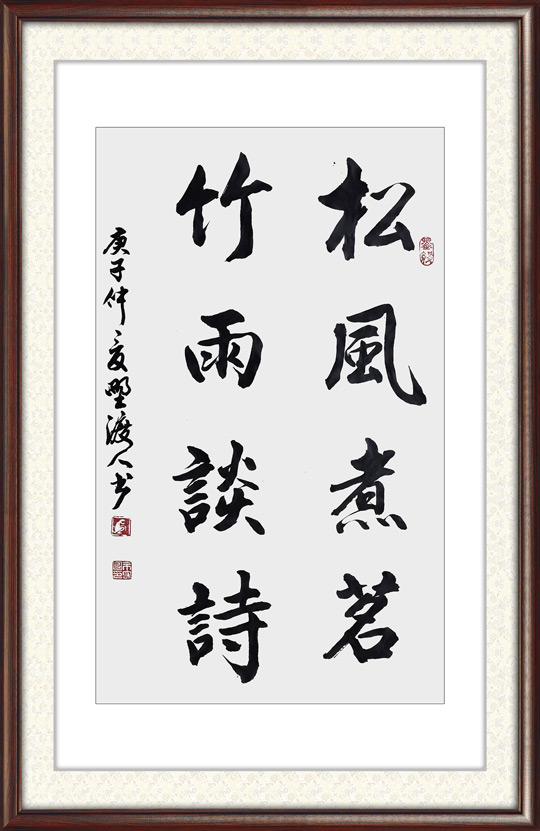 松風煮茗
竹雨談詩
庚子仲夏野渡人书